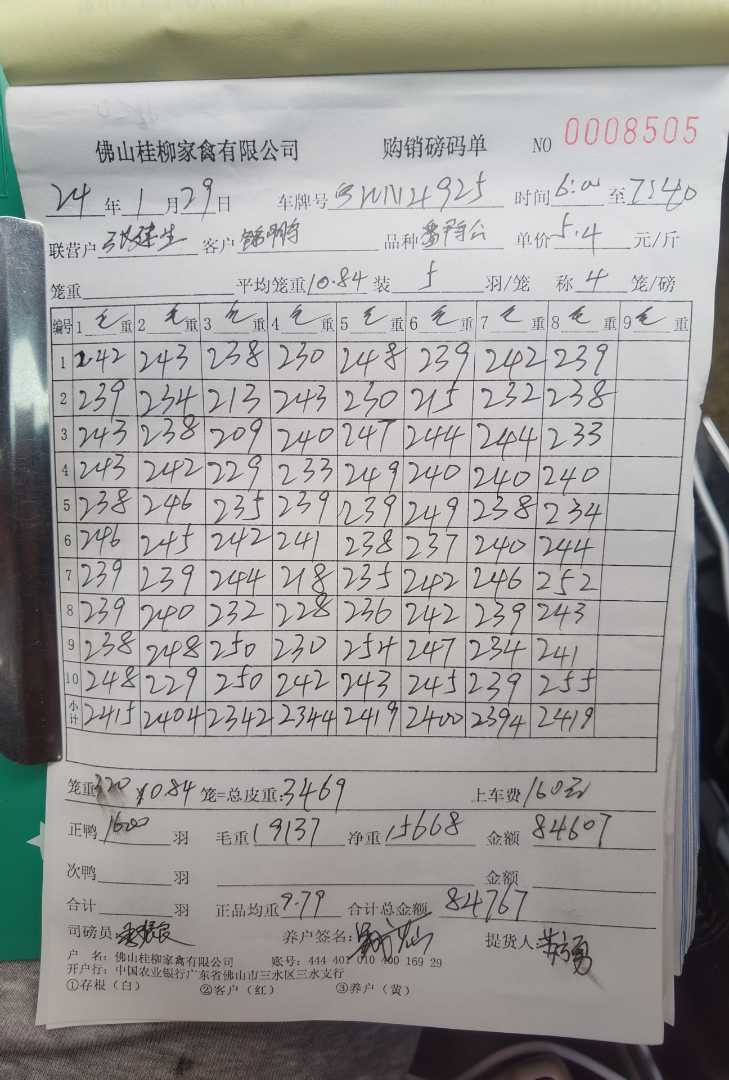 佛山桂柳家禽有限公司 购销磅码单 NO 0008505
24 年 1 月 29 日 车牌号 4925 时间 6:00 至 7:40
联营户 客户 品种 番鸭公 单价 5.4 元/斤
笼重 平均笼重 10.84 装 5 羽/笼 称 4 笼/磅
编号 1 毛 重 2 毛 重 3 毛 重 4 毛 重 5 毛 重 6 毛 重 7 毛 重 8 毛 重 9 毛 重
1 242 243 238 230 248 239 242 239
2 239 234 213 243 230 215 232 238
3 243 238 209 240 247 244 244 233
4 243 242 229 233 249 240 240 240
5 238 246 235 239 239 249 238 234
6 246 245 242 241 238 237 240 244
7 239 239 244 218 235 242 246 252
8 239 240 232 228 236 242 239 243
9 238 248 250 230 254 247 234 241
10 248 229 250 242 243 245 239 255
小计 2415 2404 2342 2344 2419 2400 2394 2419
笼重 320 ×10.84 笼=总皮重: 3469 上车费 160元
正鸭 1600 羽 毛重 19137 净重 15668 金额 84607
次鸭 羽 金额
合计 羽 正品均重 9.79 合计总金额 84767
司磅员: 养户签名: 提货人
户 名: 佛山桂柳家禽有限公司 账号: 444 401 010 400 169 29
开户行: 中国农业银行广东省佛山市三水区三水支行
①存根（白） ②客户（红） ③养户（黄）